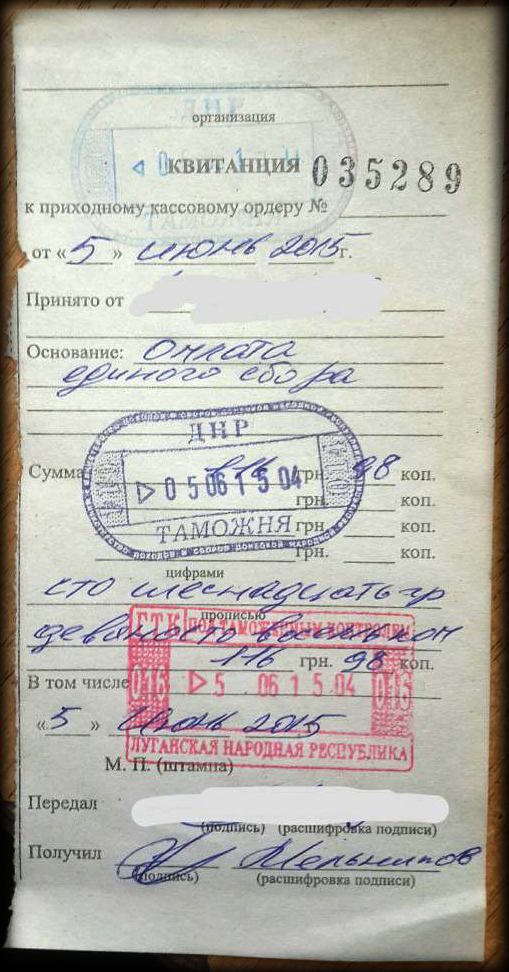 организация
ДНР
КВИТАНЦИЯ 035289
к приходному кассовому ордеру №
ТАМОЖНЯ
от «5» июнь 2015г.
Принято от
Основание: Оплата
единого сбора
ДНР
Сумма 116 грн. 98 коп.
▷ 05 06 15 04
грн. коп.
ТАМОЖНЯ грн. коп.
грн. коп.
цифрами
сто шеснадцать гр
прописью
ГТК ПОД ТАМОЖЕННЫМ КОНТРОЛЕМ
девяносто восемь коп
116 грн. 98 коп.
В том числе
013 ▷ 5 06 15 04 013
«5» Июнь 2015
ЛУГАНСКАЯ НАРОДНАЯ РЕСПУБЛИКА
М. П. (штампа)
Передал
(подпись) (расшифровка подписи)
Получил Мельников
(подпись) (расшифровка подписи)